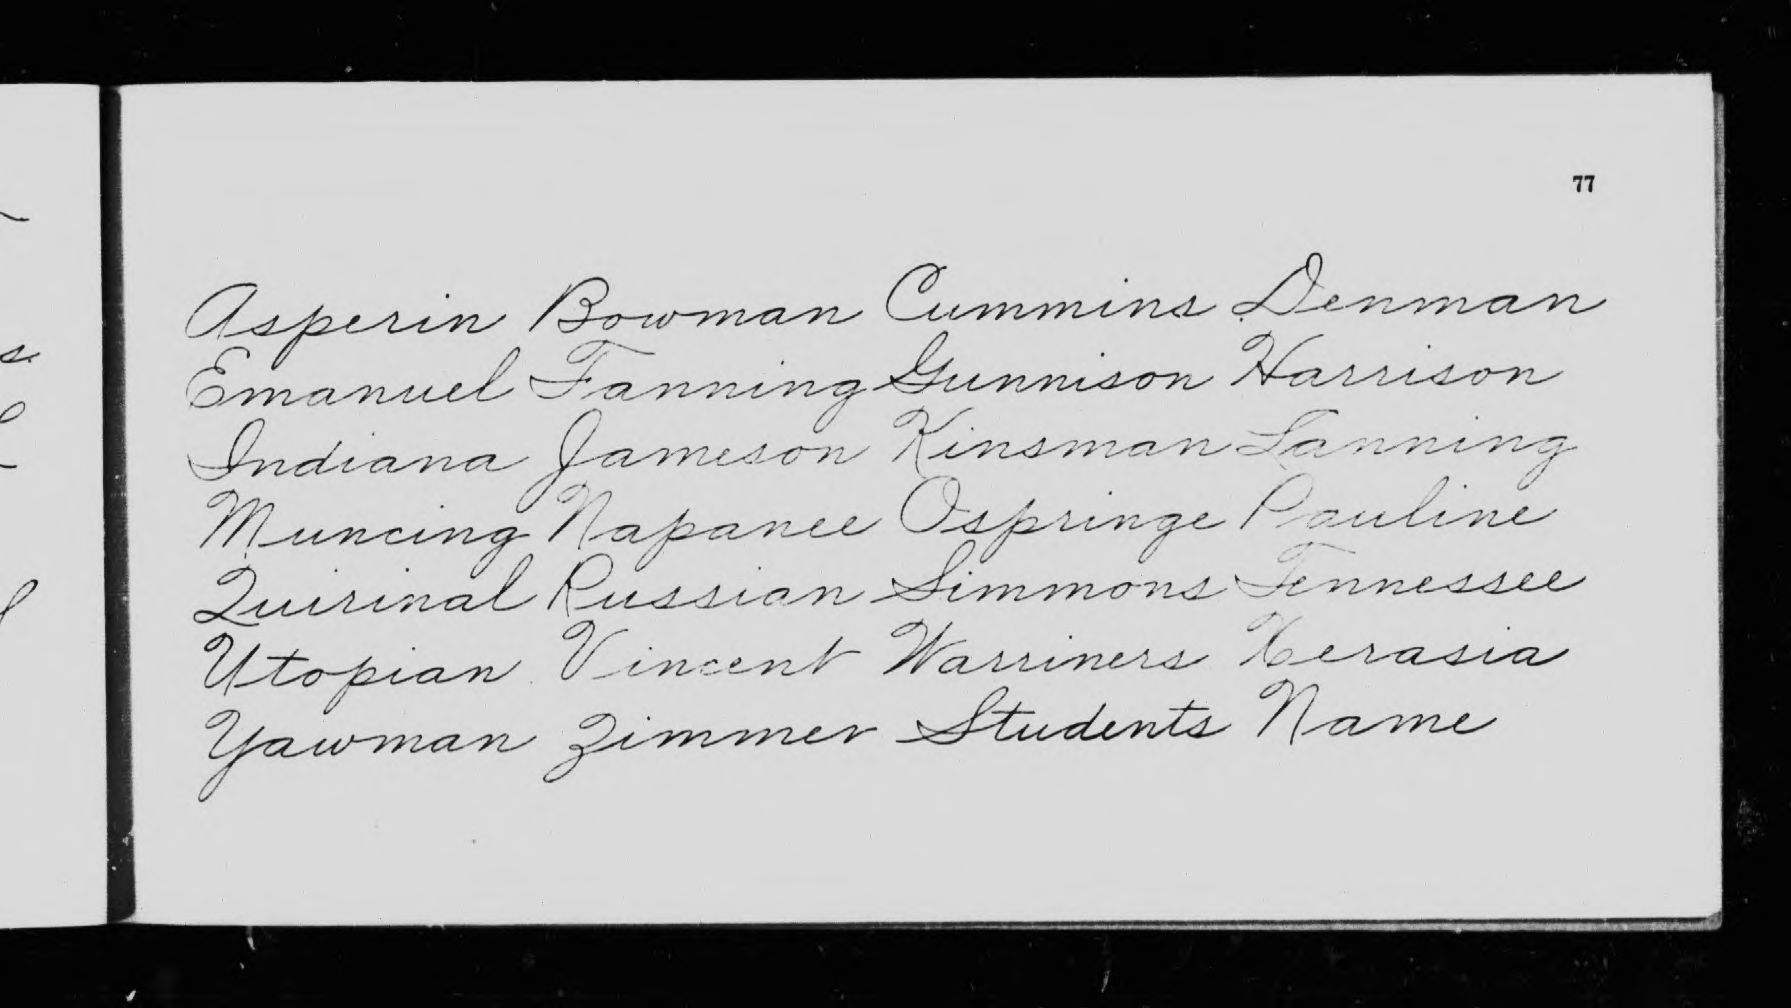 77
Asperin Bowman Cummins Denman
Emanuel Fanning Gunnison Harrison
Indiana Jameson Kinsman Lanning
Muncing Napanee Ospringe Pauline
Quirinal Russian Simmons Tennessee
Utopian Vincent Warriners Xerasia
Yawman Zimmer Students Name